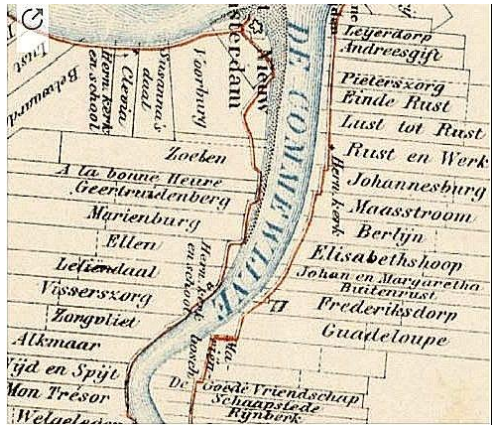 Lust
Belwaarde
Hernh. kerk
en school
Clevia
Susanna's
daal
Voorburg
Nieuw
Amsterdam
DE COMMEWIJNE
Leyerdorp
Andreesgift
Pieterszorg
Einde Rust
Lust tot Rust
Rust en Werk
Hernh. kerk
Johannesburg
Maasstroom
Berlijn
Elisabethshoop
Johan en Margaretha
Buitenrust
Frederiksdorp
Guadeloupe
Zoelen
A la bonne Heure
Geertruidenberg
Marienburg
Ellen
Hernh. kerk
en school
Leliëndaal
Visserszorg
Zorgvliet
Alkmaar
Nijd en Spijt
Mon Trésor
Welgelegen
De Goede Vriendschap
Schaapstede
Rijnberk